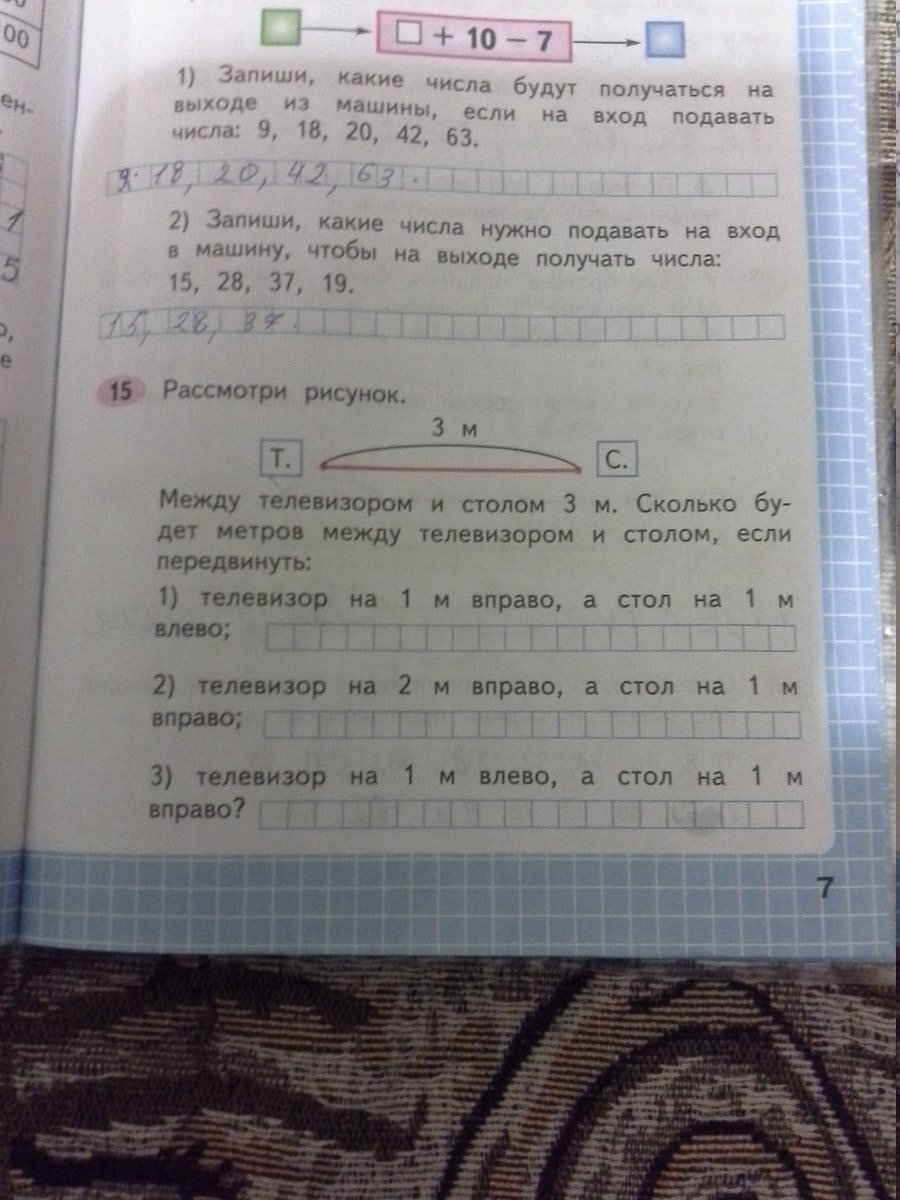 00
□ + 10 − 7
1) Запиши, какие числа будут получаться на
выходе из машины, если на вход подавать
числа: 9, 18, 20, 42, 63.
9. 18, 20, 42, 63.
2) Запиши, какие числа нужно подавать на вход
в машину, чтобы на выходе получать числа:
15, 28, 37, 19.
15, 28, 37.
ен-
1
5
о,
е
15 Рассмотри рисунок.
3 м
Т. С.
Между телевизором и столом 3 м. Сколько бу-
дет метров между телевизором и столом, если
передвинуть:
1) телевизор на 1 м вправо, а стол на 1 м
влево;
2) телевизор на 2 м вправо, а стол на 1 м
вправо;
3) телевизор на 1 м влево, а стол на 1 м
вправо?
7